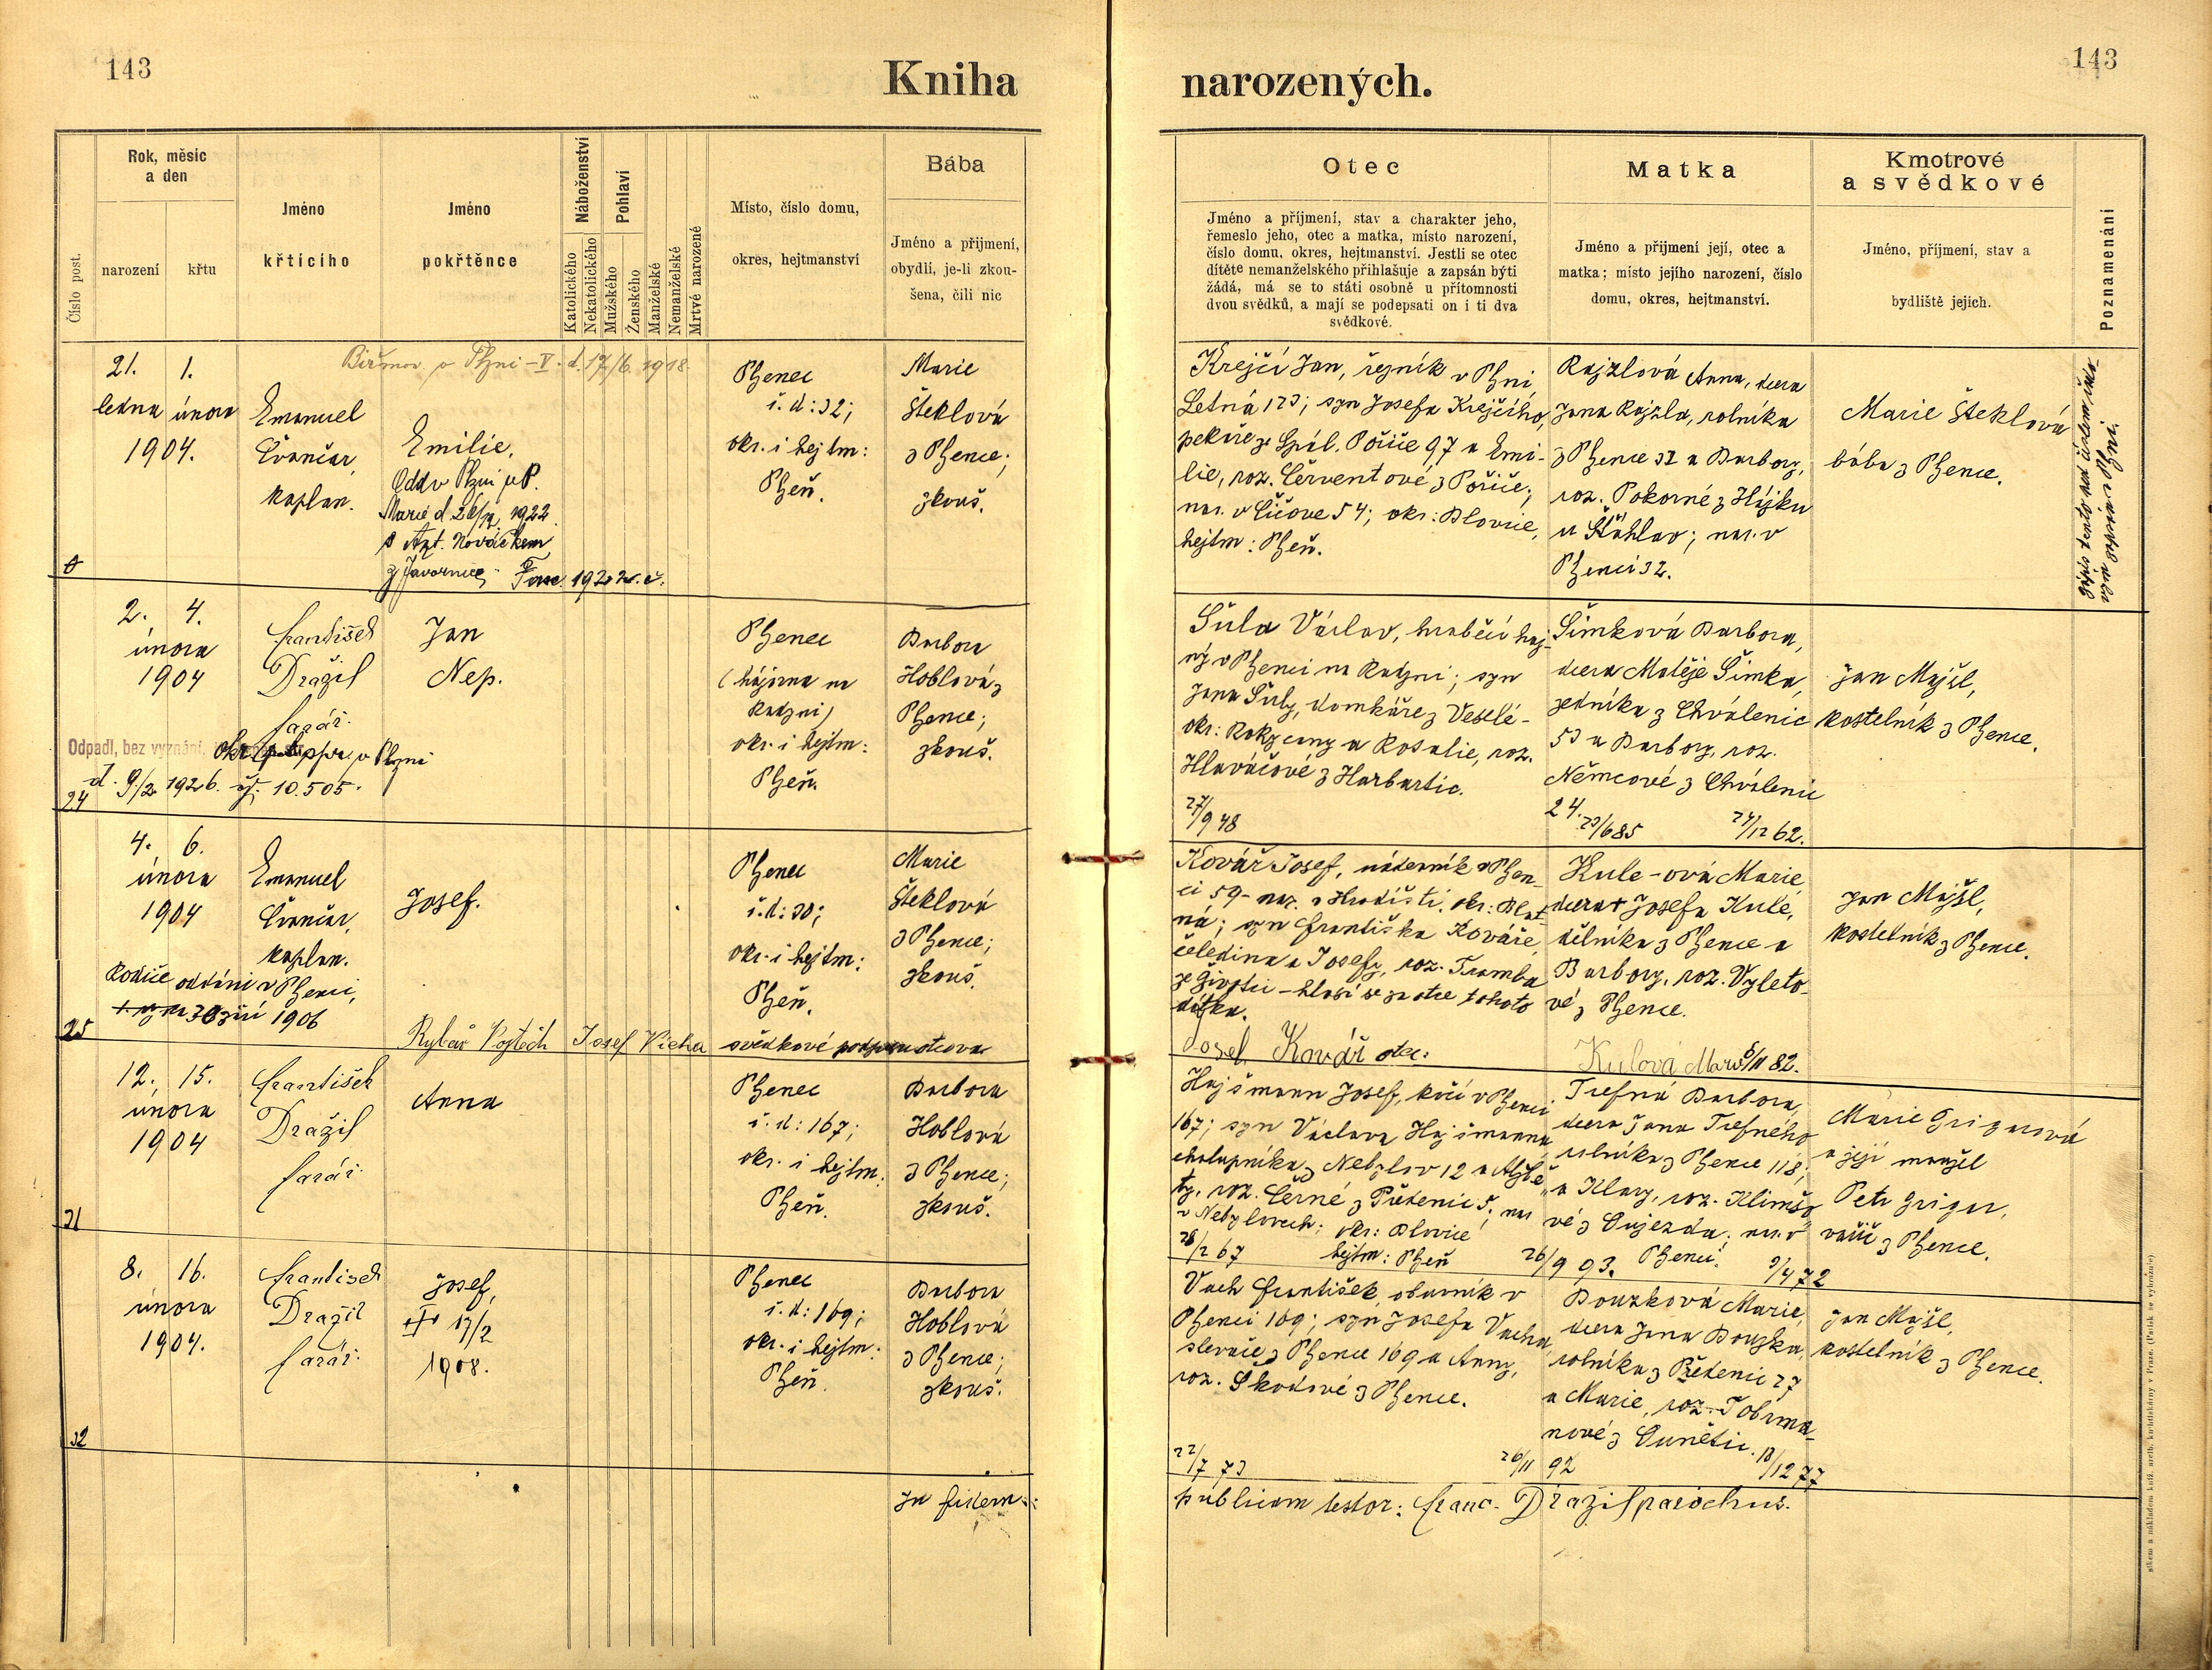 143
143
Kniha
narozených.
Číslo post.
Rok, měsíc
a den
narození
křtu
Jméno
křtícího
Jméno
pokřtěnce
Náboženství
Katolického
Nekatolického
Pohlaví
Mužského
Ženského
Manželské
Nemanželské
Mrtvé narozené
Místo, číslo domu,
okres, hejtmanství
Bába
Jméno a přijmení,
obydlí, je-li zkou-
šena, čili nic
Otec
Jméno a příjmení, stav a charakter jeho,
řemeslo jeho, otec a matka, místo narození,
číslo domu, okres, hejtmanství. Jestli se otec
dítěte nemanželského přihlašuje a zapsán býti
žádá, má se to státi osobně u přítomnosti
dvou svědků, a mají se podepsati on i ti dva
svědkové.
Matka
Jméno a přijmení její, otec a
matka; místo jejího narození, číslo
domu, okres, hejtmanství.
Kmotrové
a svědkové
Jméno, příjmení, stav a
bydliště jejich.
Poznamenání
21. 1.
ledna února
1904.
Emanuel
Čvančar,
kaplan.
Biřmov. v Plzni - V. d. 17/6. 1918.
Emilie.
Odd v Plzni u P.
Marie d. 1922
s Ant. Nováčkem
z Javornice
Plzenec
č. d: 32;
okr. i hejtm:
Plzeň.
Marie
Šteklová
z Plzence;
zkouš.
Krejčí Jan, řezník v Plzni
Letná 123; syn Josefa Krejčího,
pekaře ze Spál. Poříče 97 a Emi-
lie, roz. Červentové z Poříče;
nar. v Čížově 54; okr: Blovice,
hejtm: Plzeň.
Rajzlová Anna, dcera
Jana Rajzla, rolníka
z Plzence 32 a Barbory,
roz. Pokorné z Hájku
u Šťáhlav; nar. v
Plzenci 32.
Marie Šteklová
bába z Plzence.
2. 4.
února
1904
František
Dražil
farář.
Jan
Nep.
Odpadl, bez vyznání.
v Plzni
d. 9/2 1926. čj. 10.505.
24
Plzenec
(hájovna na
Radyni)
okr. i hejtm:
Plzeň.
Barbora
Hoblová z
Plzence;
zkouš.
Šula Václav, hraběcí haj-
ný v Plzenci na Radyni; syn
Jana Šuly, domkáře z Veselé -
okr: Rokycany a Rosalie, roz.
Hlaváčové z Harbartic.
27/9 48
Šimková Barbora,
dcera Matěje Šimka,
zedníka z Chválenic
53 a Barbory, roz.
Němcové z Chválenic
24. 23/6 85 27/12 62.
Jan Majšl,
kostelník z Plzence.
4. 6.
února
1904
Emanuel
Čvančar,
kaplan.
Josef.
Rodiče oddáni v Plzenci,
září 1906
25
Rybář Vojtěch Josef Vícha svědkové
Plzenec
č. d: 30;
okr. i hejtm:
Plzeň.
Marie
Šteklová
z Plzence;
zkouš.
Kovář Josef, nádeník v Plzen-
ci 59 - nar. v Hradišti, okr: Blat-
ná; syn Františka Kováře,
čeledína a Josefy, roz. Tramba
ze Životic - hlásí se za otce tohoto
dítka.
Josef Kovář otec:
Kule-ová Marie,
dcera † Josefa Kule,
dělníka z Plzence a
Barbory, roz. Vyleto-
vé z Plzence.
Kulová Marie 5/11 82.
Jan Majšl,
kostelník z Plzence.
12. 15.
února
1904
František
Dražil
farář.
Anna
31
Plzenec
č. d: 167;
okr. i hejtm:
Plzeň.
Barbora
Hoblová
z Plzence;
zkouš.
Hajšmann Josef, kočí v Plzenci
167; syn Václava Hajšmanna,
chalupníka z Nebylov 12 a Alžbě-
ty, roz. Černé z Předenic 5, nar.
v Nebylovech; okr: Blovice
hejtm: Plzeň
28/2 67 26/9 93.
Trefná Barbora,
dcera Jana Trefného
rolníka z Plzence 118,
a Klary, roz. Klimšo-
vé z Oujezda; nar. v
Plzenci. 9/4 72
Marie Grigarová
a její manžel
Petr Grigar,
vařič z Plzence.
8. 16.
února
1904.
František
Dražil
farář.
Josef,
17/2
1908.
32
Plzenec
č. d: 169;
okr. i hejtm:
Plzeň.
Barbora
Hoblová
z Plzence;
zkouš.
Vach František obuvník v
Plzenci 169; syn Josefa Vacha,
slevače z Plzence 169 a Anny,
roz. Škodové z Plzence.
22/7 73 26/11 92
Bouzková Marie,
dcera Jana Bouzka,
rolníka z Předenic 27
a Marie, roz. Tobrma-
nové z Ounětic. 18/12 77
Jan Majšl,
kostelník z Plzence.
In fidem
publicam testor: Franc. Dražil parochus.